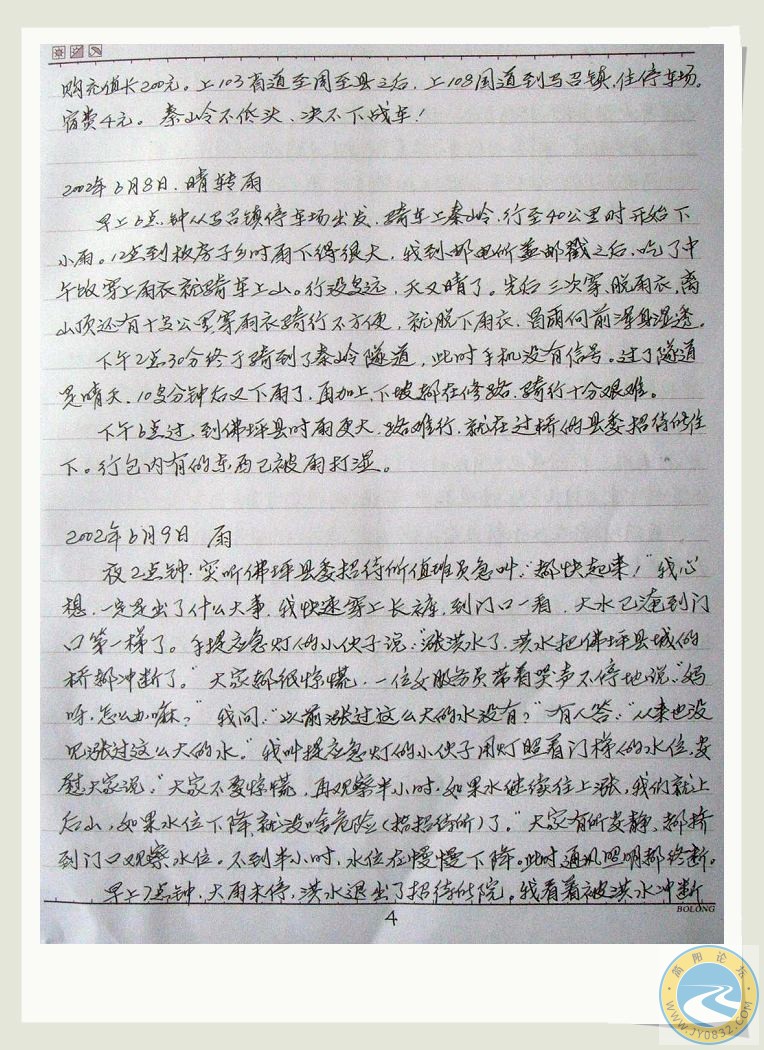 购充值卡200元。上103省道至周至县之后，上108国道到马召镇，住停车场。
宿费4元。秦山岭不低头、决不下战车！
2002年6月8日.晴转雨
早上6点钟从马召镇停车场出发，骑车上秦山岭，行至40公里时开始下
小雨。12点到板房子乡时雨下得很大，我到邮电所盖邮戳之后，吃了中
午饭穿上雨衣就骑车上山。行没多远，天又晴了。先后三次穿、脱雨衣，离
山顶还有十多公里穿雨衣骑行不方便，就脱下雨衣、冒雨向前湿身湿透。
下午2点30分终于骑到了秦岭隧道，此时手机没有信号。过了隧道
是晴天、10多分钟后又下雨了，再加上、下坡都在修路，骑行十分艰难。
下午6点过，到佛坪县时雨更大，路难行，就在过桥的县委招待所住
下。行包内有的东西已被雨打湿。
2002年6月9日 雨
夜2点钟，突听佛坪县委招待所值班员急叫：“都快起来！”我心
想，一定是出了什么大事，我快速穿上长裤，到门口一看，大水已淹到门
口第一梯了。手提应急灯的小伙子说：“涨洪水了，洪水把佛坪县城的
桥都冲断了。”大家都很惊慌，一位女服务员带着哭声不停地说：“妈
呀，怎么办嘛？”我问：“以前涨过这么大的水没有？”有人答：“从来也没
见涨过这么大的水。”我叫提应急灯的小伙子用灯照着门梯的水位，安
慰大家说：“大家不要惊慌，再观察半小时，如果水继续往上涨，我们就上
后山，如果水位下降就没啥危险（指招待所）了。”大家有所安静，都挤
到门口观察水位。不到半小时，水位在慢慢下降。此时通讯照明都终断。
早上7点钟，大雨未停，洪水退出了招待所院。我看着被洪水冲断
BOLONG
4
简阳论坛
WWW.JY0832.COM